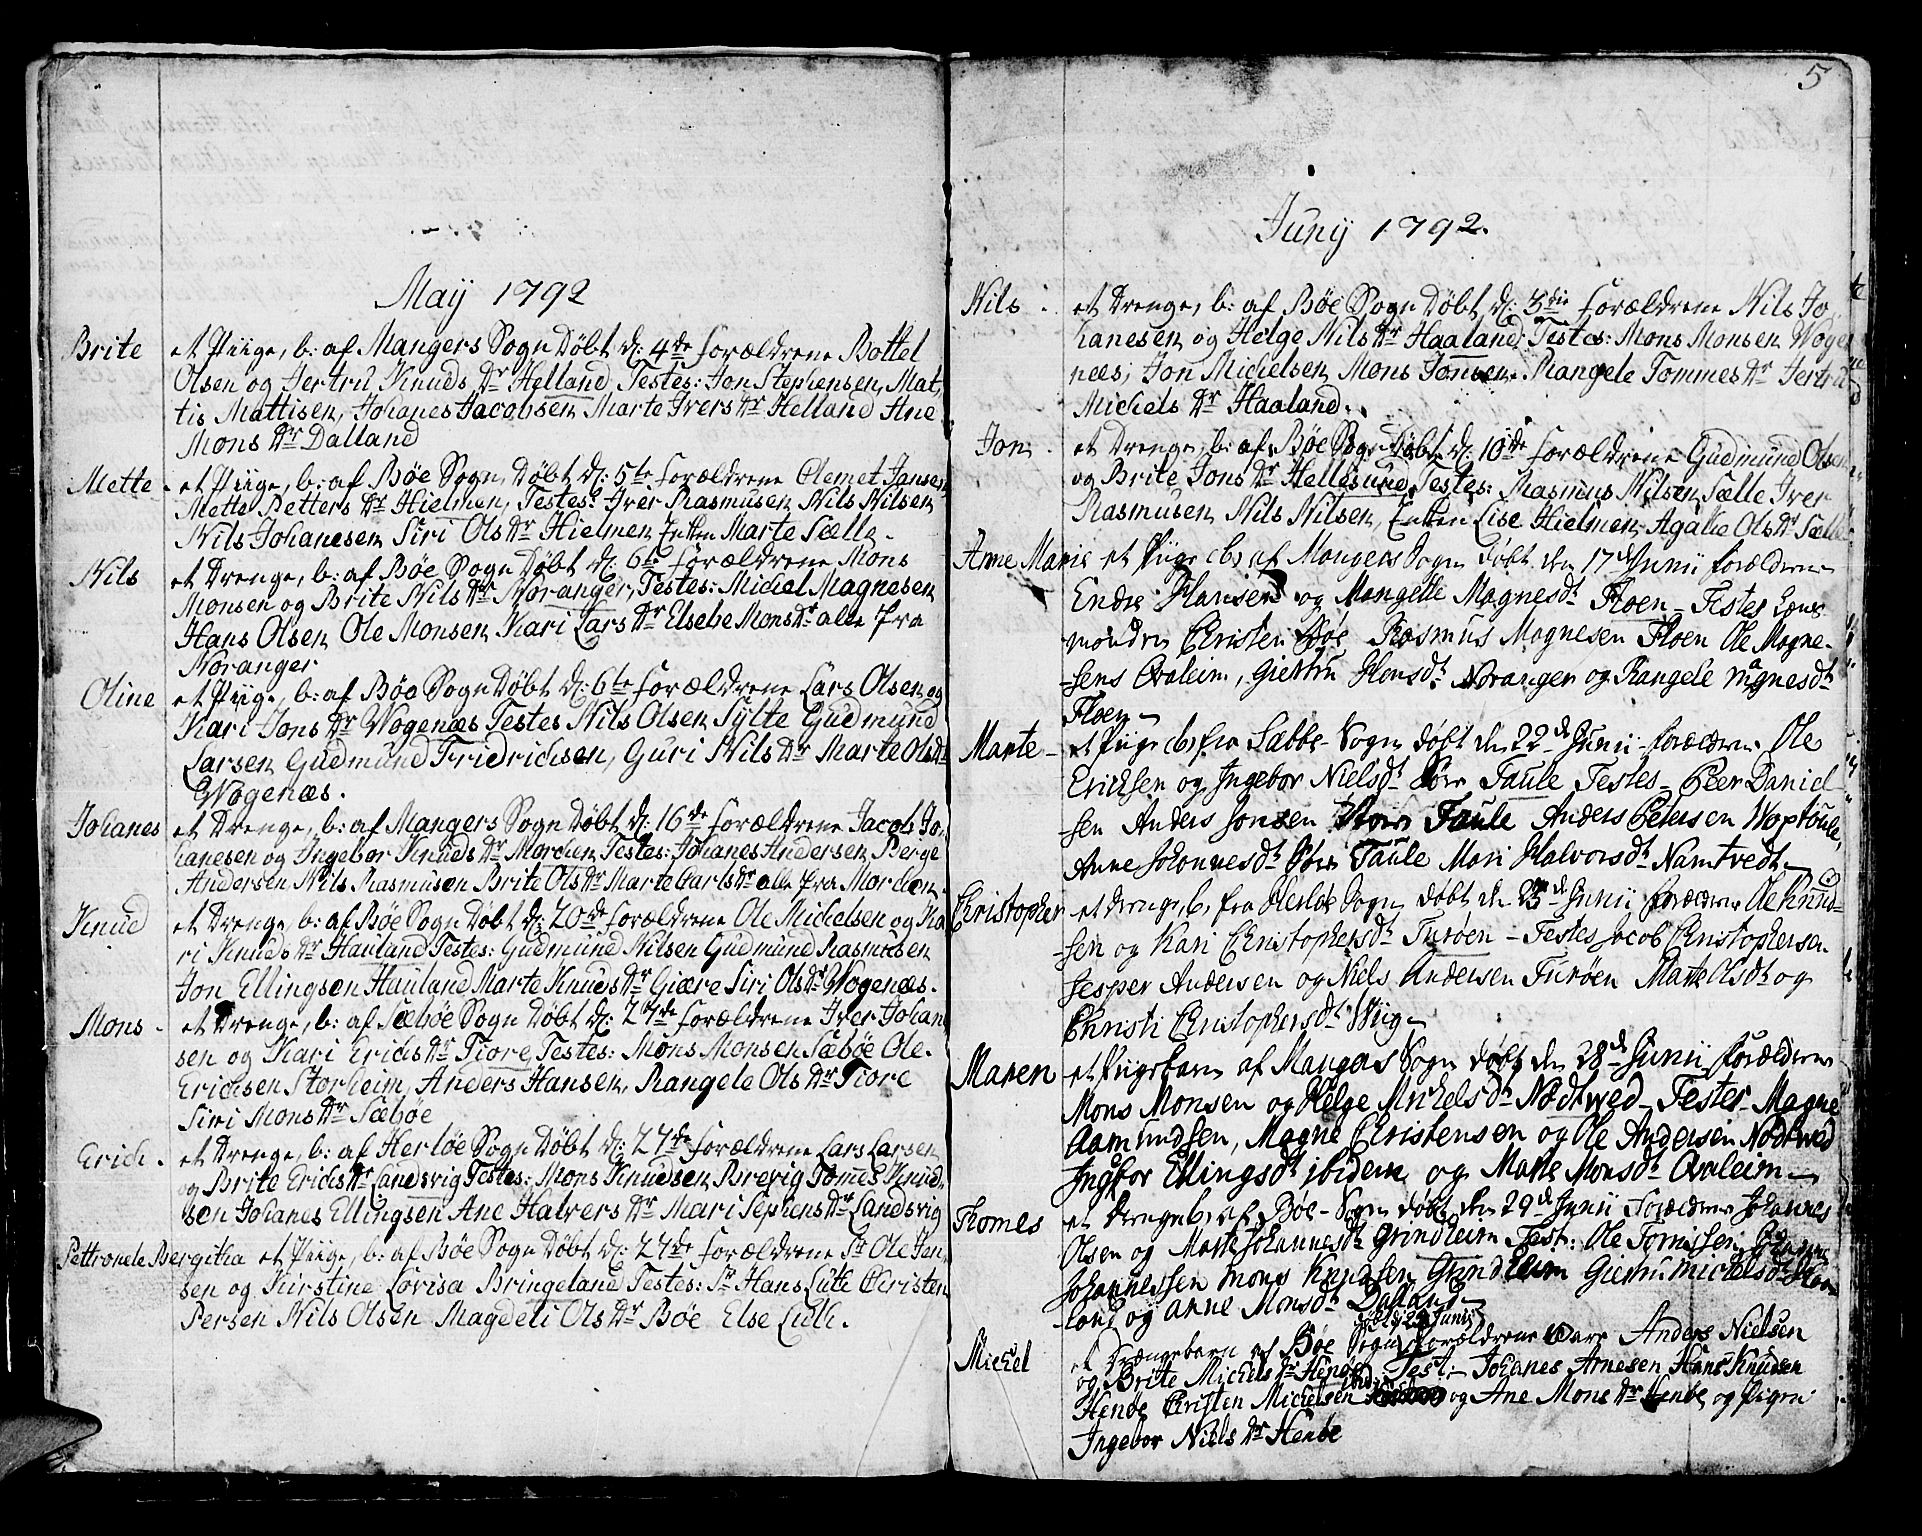 May 1792
Brite et Piige, b: af Mangers Sogn Døbt d: 4de forældrene Bottel
Olsen og Jertru Knuds Dr Helland, Testes: Jon Stephensen, Mat,
tis Mattisen, Johanes Jacobsen Marte Ivers Dr Helland Ane
Mons Dr Dalland
Mette - et Piige, b: af Bøe Sogn, Døbt d: 5te forældrene Clemet Jansen
Mette Petters Dr Hielmen, Testes: Iver Rasmusen Nils Nilsen
Nils Johanesen Siri Ols Dr Hielmen Enken Marte Sælle -
Nils et Drenge, b: af Bøe Sogn Døbt d: 6te forældrene Mons
Monsen og Brite Nils Dr Noranger, Testes: Michel Magnesen
Hans Olsen Ole Monsen Kari Lars Dr Elsebe Mons Dr alle fra
Noranger
Oline et Piige, b: af Bøe Sogn Døbt d: 6te forældrene Lars Olsen og
Kari Jons Dr Wogenæs Testes Nils Olsen Sylte Gudmund
Larsen Gudmund Fridrichsen, Guri Nils Dr Marte Ols Dr
Wogenæs.
Johanes et Drenge, b: af Mangers Sogn Døbt d: 16de forældrene Jacob Jo,
hanesen og Ingebor Knuds Dr Morchen Testes: Johanes Andersen Berge
Andersen Nils Rasmusen Brite Ols Dr Marte Carls Dr alle fra Morchen.
Knud et Drenge b: af Bøe Sogn Døbt d: 20de forældrene Ole Michelsen og Ka
ri Knuds Dr Hauland Testes: Gudmund Nilsen Gudmund Rasmusen
Jon Ellingsen Hauland Marte Knuds Dr Giære Siri Ols Dr Wogenæs.
Mons - et Drenge, b: af Sæbøe Sogn Døbt d: 27de forældrene Iver Johan
sen og Kari Erichs Dr Fiore, Testes: Mons Monsen Sæbøe Ole.
Erichsen Storheim, Anders Hansen, Rangele Ols Dr Fiore
Siri Mons Dr Sæbøe
Erich. et Drenge, b: af Herløe Sogn Døbt d: 27de forældrene Lars Larsen
og Brite Erichs Dr Landsvig Testes: Mons Knudsen Brevig Tomes Knud,
sen Johanes Ellingsen Ane Halvers Dr Mari Sephens Dr Landsvig
Pettronele Bergitha et Piige, b: af Bøe Sogn Døbt d: 27de forældrene Sr Ole Jen
sen og Kirstine Lovisa Bringeland Testes: Sr Hans Lute Christen
Persen Nils Olsen Magdeli Ols Dr Bøe Else Lule.
5
Juny 1792.
Nils. et Drenge, b: af Bøe Sogn Døbt d: 3die forældrene Nils Jo,
hanesen og Helge Nils Dr Haaland, Testes: Mons Monsen Woge
næs, Jon Michelsen Mons Jonsen. Rangele Tommes Dr Jertru
Michels Dr Haaland.
Jon. et Drenge, b: af Bøe Sogn Døbt d: 10de forældrene Gudmund Olsen
og Brite Jons Dr Hellesund, Testes: Rasmus Nilsen Sælle Iver
Rasmusen Nils Nilsen, Enken Lise Hielmen Agathe Ols Dr Sælle
Anne Marie et Piige (b) af Mangers Sogn døbt den 17d Junii forældrene
Endre Hansen og Mangelle Magnesdt Floen - Testes
Christen Bøe Rasmus Magnesen Floen Ole Magne-
-sens Qvaleim, Giertru Hansdt Noranger og Rangele magnesdt
Floen -
Marte - et Piige (b) fra Sæbbe-Sogn døbt den 22d Junii forældrene Ole
Ericksen og Ingebor Nielsdt Taule Testes - Peer Daniel-
-sen Anders Jonsen Taule Anders Petersen
Anne Johannesdt Taule Mari Halvorsdt Namtvedt -
Christopher et drenge b, fra Herløe Sogn døbt den 23d Junii forældrene Ole Knud-
-sen og Kari Christophersdt Turøen - Testes Jacob Christophersen
Jesper Andersen og Niels Andersen Turøen Marte Olsdt og
Christi Christophersdt Wiig -
Maren et Piigebarn af Mangers Sogn døbt den 28d Junii forældrene
Mons Monsen og Helge Mickelsdt Nodtwed - Testes - Magne
Aamundsen, Magne Christensen og Ole Andersen Nodtwed
Ingbor Ellingsdt ibidem og Marte Monsdt Qvaleim -
Thomes et drenge b, af Bøe-Sogn døbt den 29d Junii Forældrene Johannes
Olsen og Marte Johannesdt Grindheim Test: Ole Tomissen
Johannessen mons Knudsen Grindheim Giertru mickelsdt
land og anne Monsdt Dalland -
døbt d 29 Junii
Michel et Drængebarn af Bøe Sogn, forældrene Ware Anders Nielsen
og Brite Michels Dr Henøe Test:- Johanes Arnesen Hans Knudsen
Henøe Christen Michelsen og Ane Mons Dr Henøe og Pigen
Ingebor Niels Dr Henøe